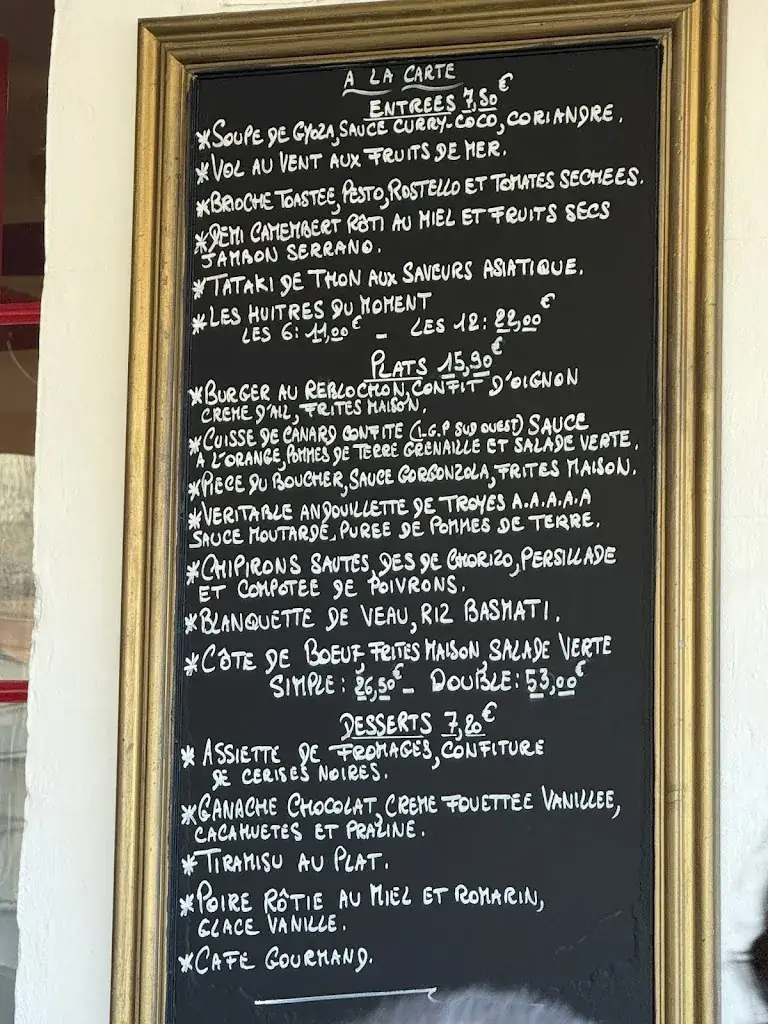 A LA CARTE
ENTREES 7,50€
*SOUPE DE GYOZA, SAUCE CURRY-COCO, CORIANDRE.
*VOL AU VENT AUX FRUITS DE MER.
*BRIOCHE TOASTEE, PESTO, ROSTELLO ET TOMATES SECHEES.
*DEMI CAMEMBERT RÔTI AU MIEL ET FRUITS SECS
JAMBON SERRANO.
*TATAKI DE THON AUX SAVEURS ASIATIQUE.
*LES HUITRES DU MOMENT
LES 6: 11,00€ - LES 12: 22,00€
PLATS 15,90€
*BURGER AU REBLOCHON, CONFIT D'OIGNON
CREME D'AIL, FRITES MAISON.
*CUISSE DE CANARD CONFITE (I.G.P SUD OUEST) SAUCE
A L'ORANGE, POMMES DE TERRE GRENAILLE ET SALADE VERTE.
*PIECE DU BOUCHER, SAUCE GORGONZOLA, FRITES MAISON.
*VERITABLE ANDOUILLETTE DE TROYES A.A.A.A.A
SAUCE MOUTARDE, PUREE DE POMMES DE TERRE.
*CHIPIRONS SAUTES, DES DE CHORIZO, PERSILLADE
ET COMPOTEE DE POIVRONS.
*BLANQUETTE DE VEAU, RIZ BASMATI.
*CÔTE DE BOEUF, FRITES MAISON, SALADE VERTE
SIMPLE: 26,50€ - DOUBLE: 53,00€
DESSERTS 7,20€
* ASSIETTE DE FROMAGES, CONFITURE
DE CERISES NOIRES.
*GANACHE CHOCOLAT, CREME FOUETTEE VANILLEE,
CACAHUETES ET PRALINE.
*TIRAMISU AU PLAT.
*POIRE RÔTIE AU MIEL ET ROMARIN,
GLACE VANILLE.
*CAFE GOURMAND.